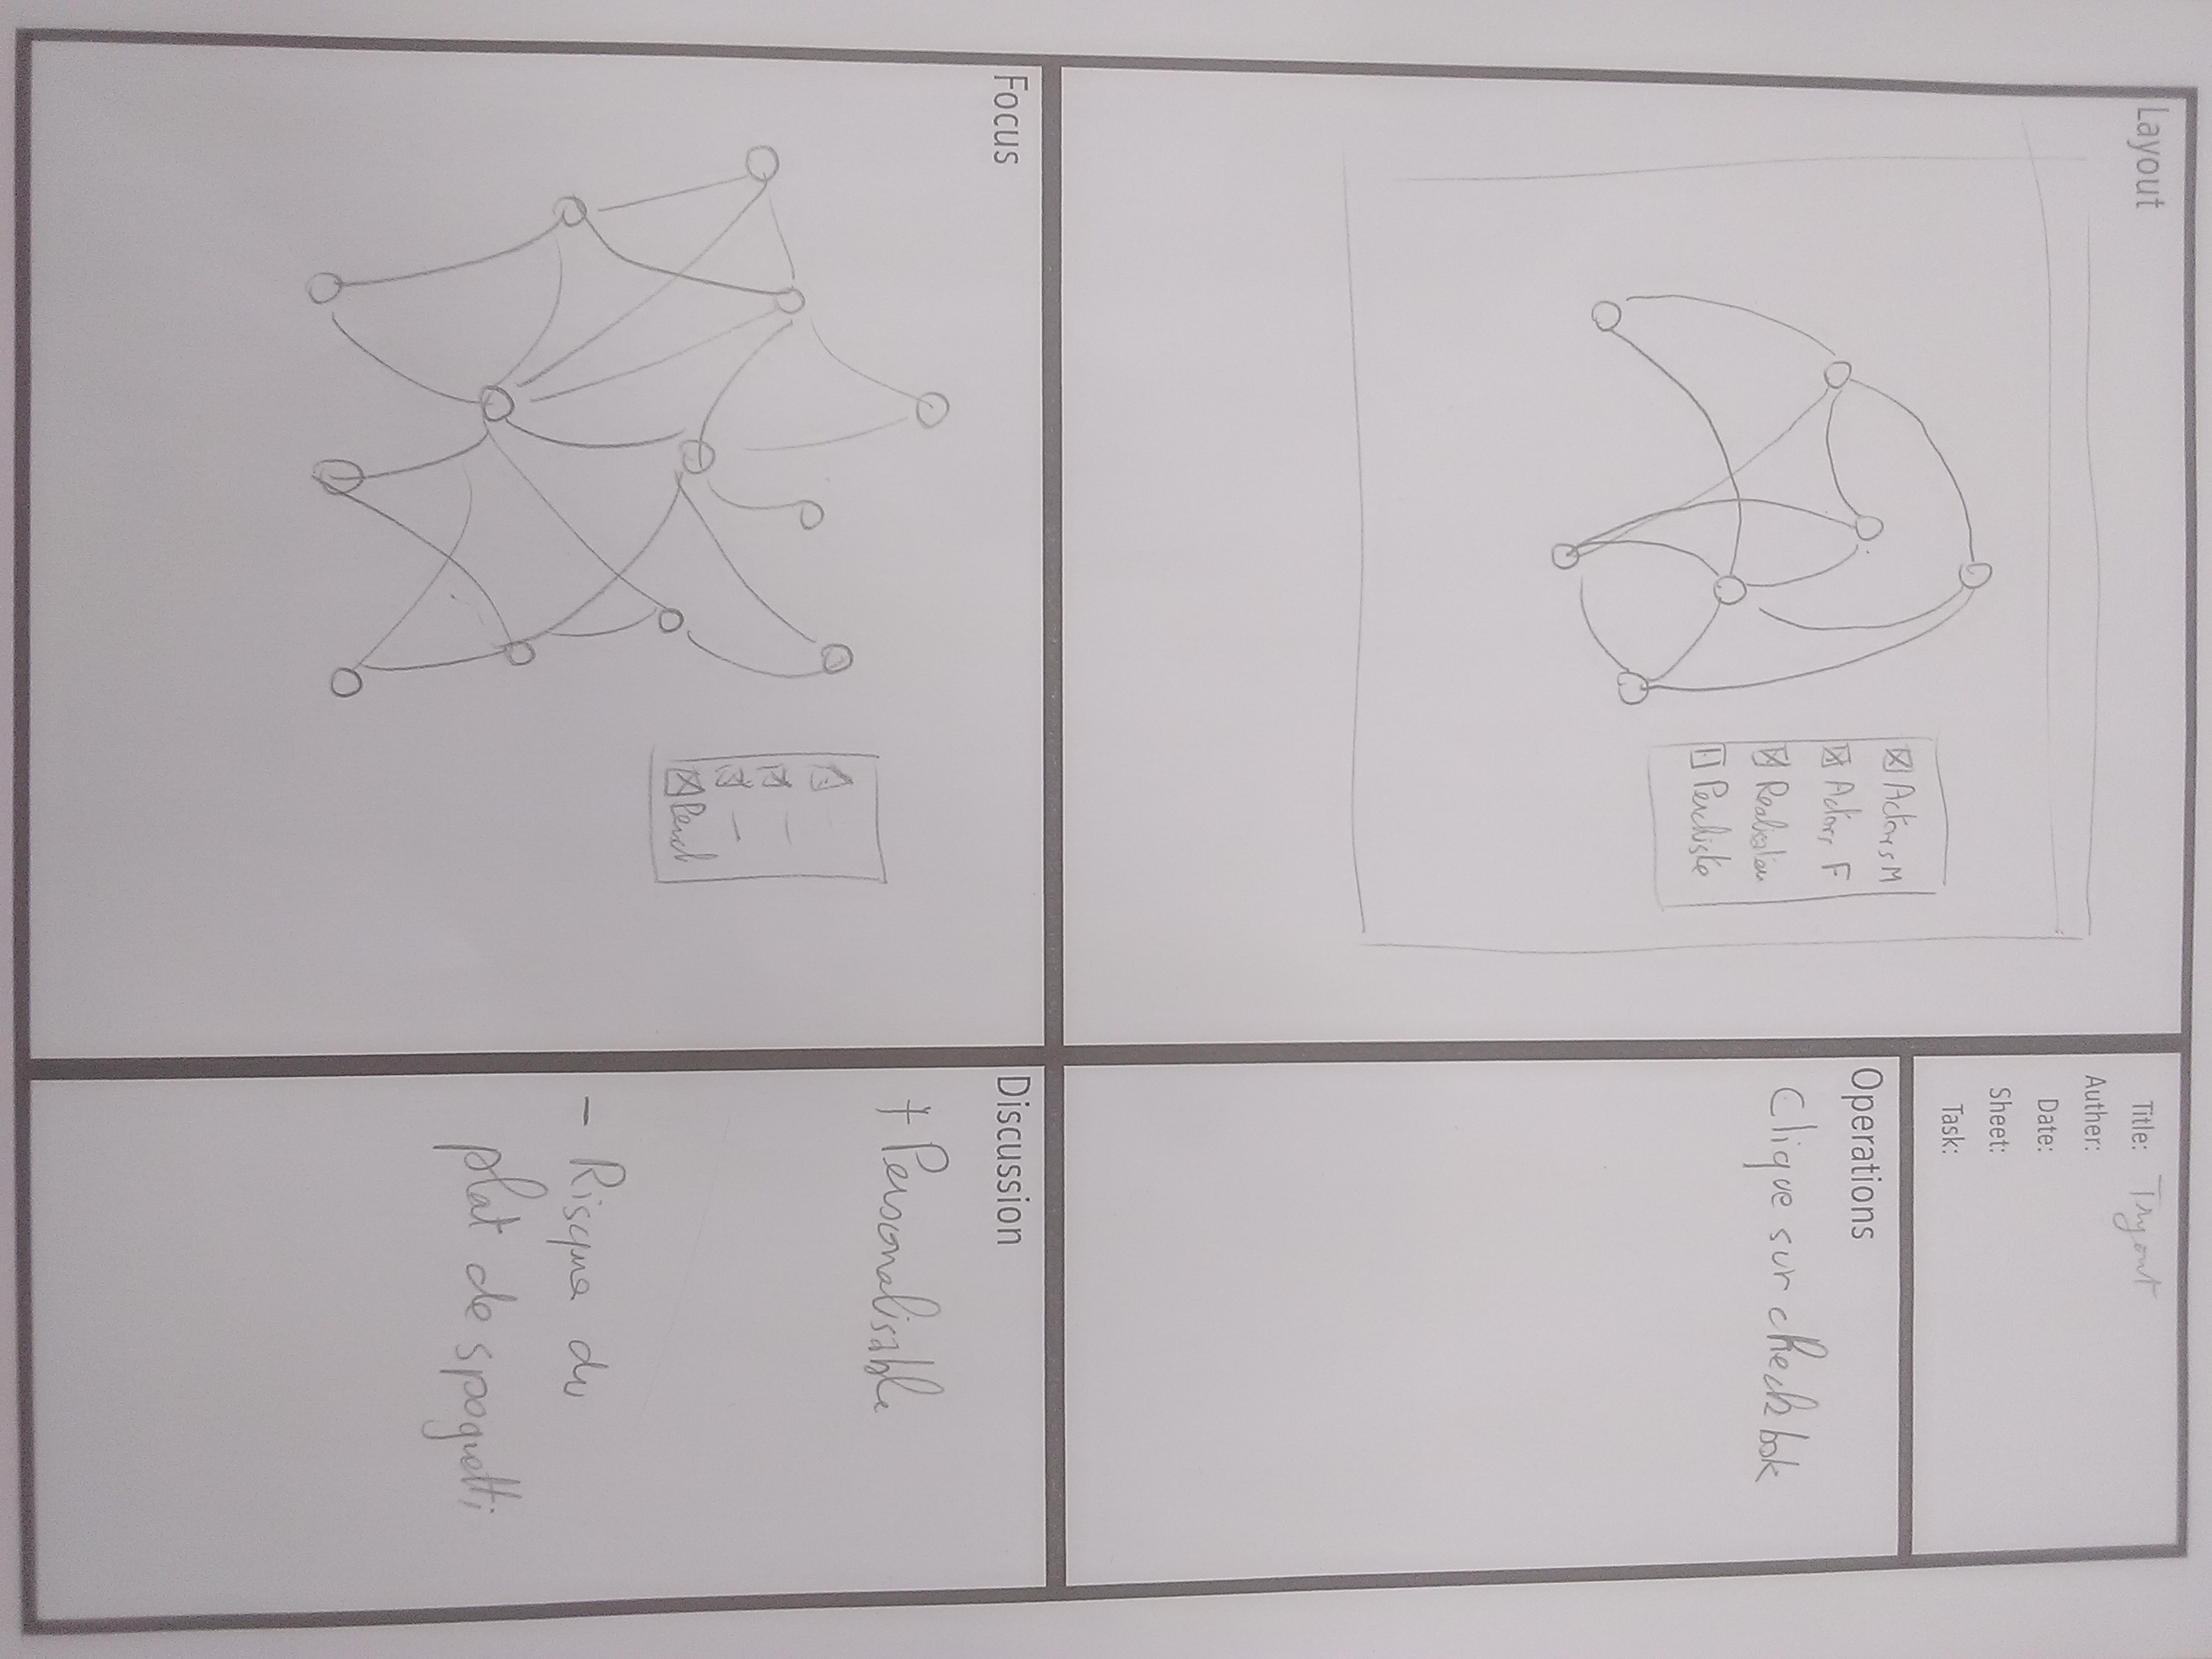 Layout
Actors M
Actors F
Realisateu
Perchiste
Title: Tryout
Auther:
Date:
Sheet:
Task:
Operations
Clique sur checkbok
Focus
Perch
Discussion
+ Personalisable
- Risque du
plat de spaguetti